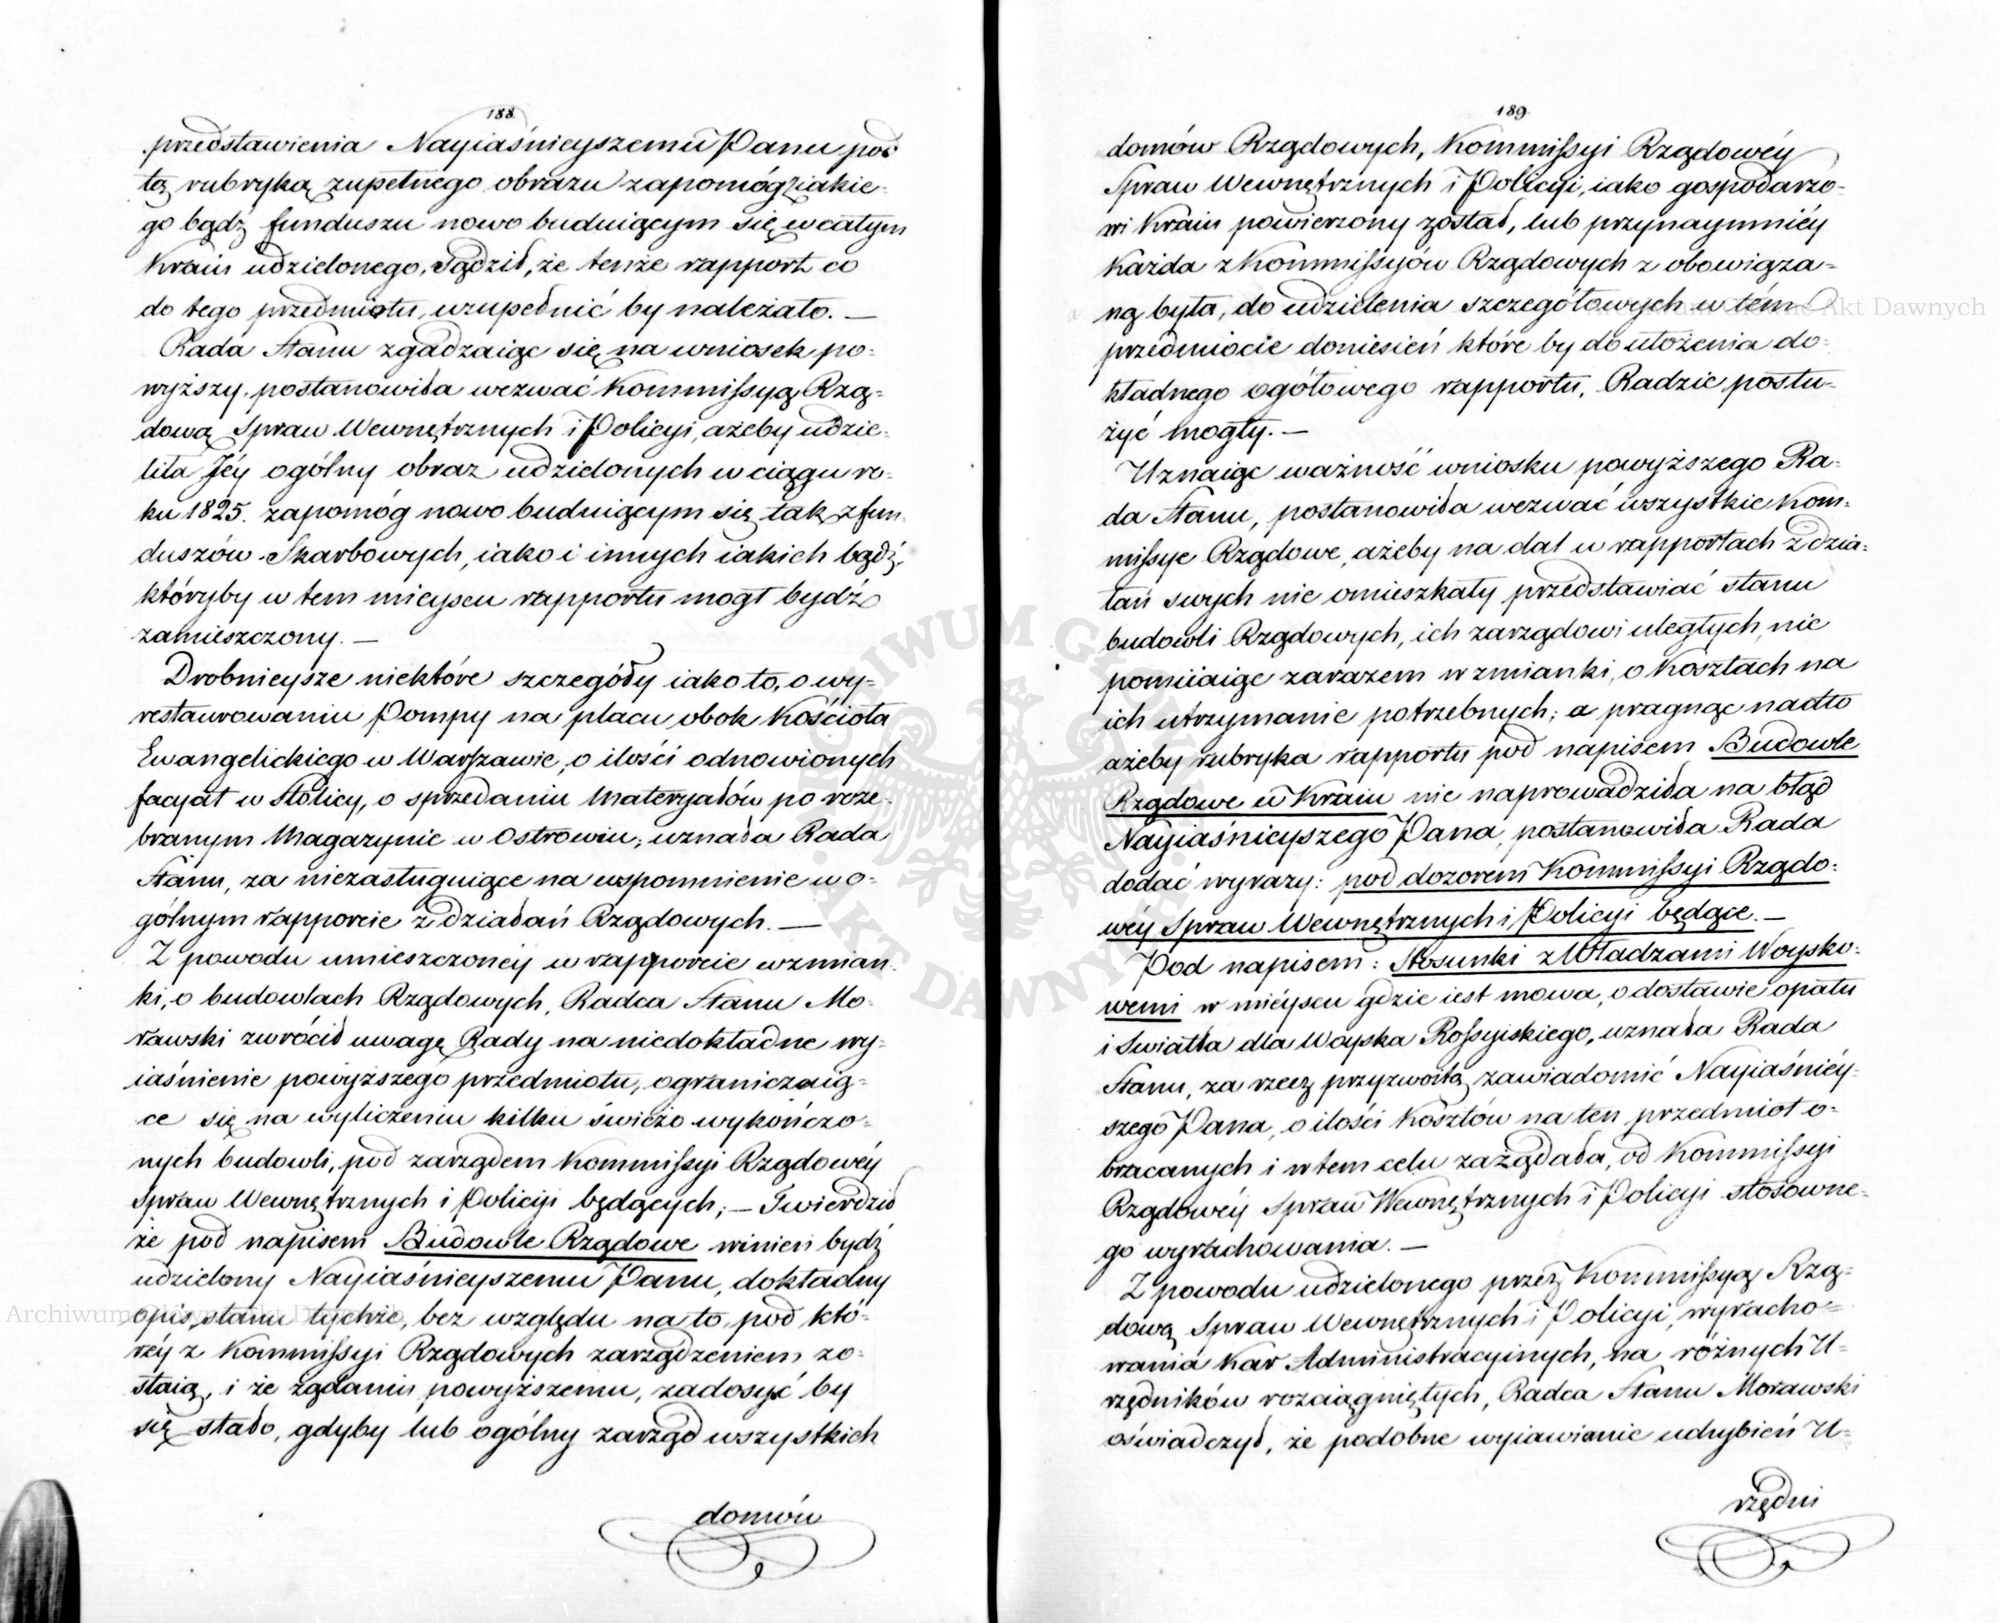 188.
przedstawienia Nayiaśnieyszemu Panu pod
tą rubryką zupełnego obrazu zapomóg z iakie-
go bądź funduszu nowo buduiącym się w całym
Kraiu udzielonego, Sądził, że tenże rapport co
do tego przedmiotu, uzupełnić by należało. —
Rada Stanu zgadzaiąc się na wniosek po-
wyższy. postanowiła wezwać Kommissyą Rzą-
dową Spraw Wewnętrznych i Policyi, ażeby udzie-
liła Jéy ogólny obraz udzielonych w ciągu ro-
ku 1825. zapomóg nowo buduiącym się tak z fun-
duszów Skarbowych, iako i innych iakich bądź,
któryby w tem mieyscu rapportu mogł bydź
zamieszczony. —
Drobnieysze niektóre szczegóły iako to, o wy-
restaurowaniu Pompy na placu obok Kościoła
Ewangelickiego w Warszawie, o ilości odnowionych
facyat w Stolicy, o sprzedaniu Materyałów po roze-
branym Magazynie w Ostrowiu; uznała Rada
Stanu, za niezasługuiące na wspomnienie w o-
gólnym rapporcie z działań Rządowych. —
Z powodu umieszczonéy w rapporcie wzmian-
ki, o budowlach Rządowych, Radca Stanu Mo-
rawski zwrócił uwagę Rady na niedokładne wy-
iaśnienie powyższego przedmiotu, ograniczaią-
ce się na wyliczeniu kilku świeżo wykończo-
nych budowli, pod zarządem Kommissyi Rządowéy
Spraw Wewnętrznych i Policyi będących; — Twierdził
że pod napisem Budowle Rządowe winien bydź
udzielony Nayiaśnieyszemu Panu, dokładny
opis stanu tychże, bez względu na to, pod któ-
réy z Kommissyi Rządowych zarządzeniem zo-
staią, i że żądaniu powyższemu, zadosyć by
się stało, gdyby lub ogólny zarząd wszystkich
domów
189.
domów Rządowych, Kommissyi Rządowéy
Spraw Wewnętrznych i Policyi, iako gospodarzo-
wi Kraiu powierzony został, lub przynaymniéy
Każda z Kommissyów Rządowych z obowiąza-
ną była, do udzielenia szczegółowych w tém
przedmiocie doniesień które by do ułożenia do-
kładnego ogółowego rapportu, Radzie posłu-
żyć mogły. —
Uznaiąc ważność wniosku powyższego Ra-
da Stanu, postanowiła wezwać wszystkie Kom-
missye Rządowe, ażeby na dal w rapportach z dzia-
łań swych nie omieszkały przedstawiać stanu
budowli Rządowych, ich zarządowi uległych, nie
pomiiaiąc zarazem wzmianki, o Kosztach na
ich utrzymanie potrzebnych; a pragnąc nadto
ażeby rubryka rapportu pod napisem Budowle
Rządowe w Kraiu nie naprowadziła na błąd
Nayiaśnieyszego Pana, postanowiła Rada
dodać wyrazy: pod dozorem Kommissyi Rządo-
wéy Spraw Wewnętrznych i Policyi będące. —
Pod napisem: Stosunki z Władzami Woysko-
wemi w mieyscu gdzie iest mowa, o dostawie opału
i Swiatła dla Woyska Rossyiskiego, uznała Rada
Stanu, za rzecz przyzwoitą zawiadomić Nayiaśniéy-
szego Pana, o ilości Kosztów na ten przedmiot o-
bracanych i w tem celu zażądała, od Kommissyi
Rządowéy Spraw Wewnętrznych i Policyi stosowne-
go wyrachowania. —
Z powodu udzielonego przez Kommissyą Rzą-
dową Spraw Wewnętrznych i Policyi, wyracho-
wania Kar Administracyinych, na różnych U-
rzędników rozciągniętych, Radca Stanu Morawski
oświadczył, że podobne wyiawienie uchybień U-
rzędni
Archiwum Główne Akt Dawnych
Archiwum Główne Akt Dawnych
ARCHIWUM GŁÓWNE
AKT DAWNYCH